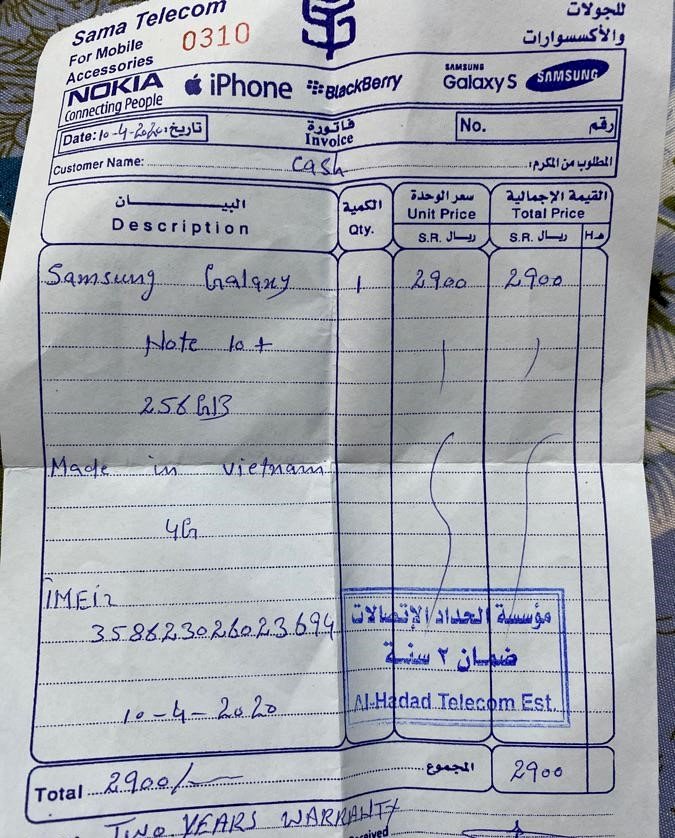 Sama Telecom
For Mobile
Accessories
0310
للجولات
والأكسسوارات
NOKIA
Connecting People
iPhone
BlackBerry
SAMSUNG
Galaxy S
SAMSUNG
Date: 10-4-2020 تاريخ:
فاتورة
Invoice
No. رقم
Customer Name: cash المطلوب من المكرم:
البيــــان
Description
الكمية
Qty.
سعر الوحدة
Unit Price
S.R. ريـال
القيمة الإجمالية
Total Price
S.R. ريـال
هـ.H
Samsung Galaxy 1 2900 2900
Note 10+
256 GB
Made in vietnam
4G
IMEI:
358623026023694
مؤسسة الحداد الإتصالات
ضمان ٢ سنة
Al-Hadad Telecom Est.
10-4-2020
Total 2900/- المجموع 2900
TWO YEARS WARRANTY
Received